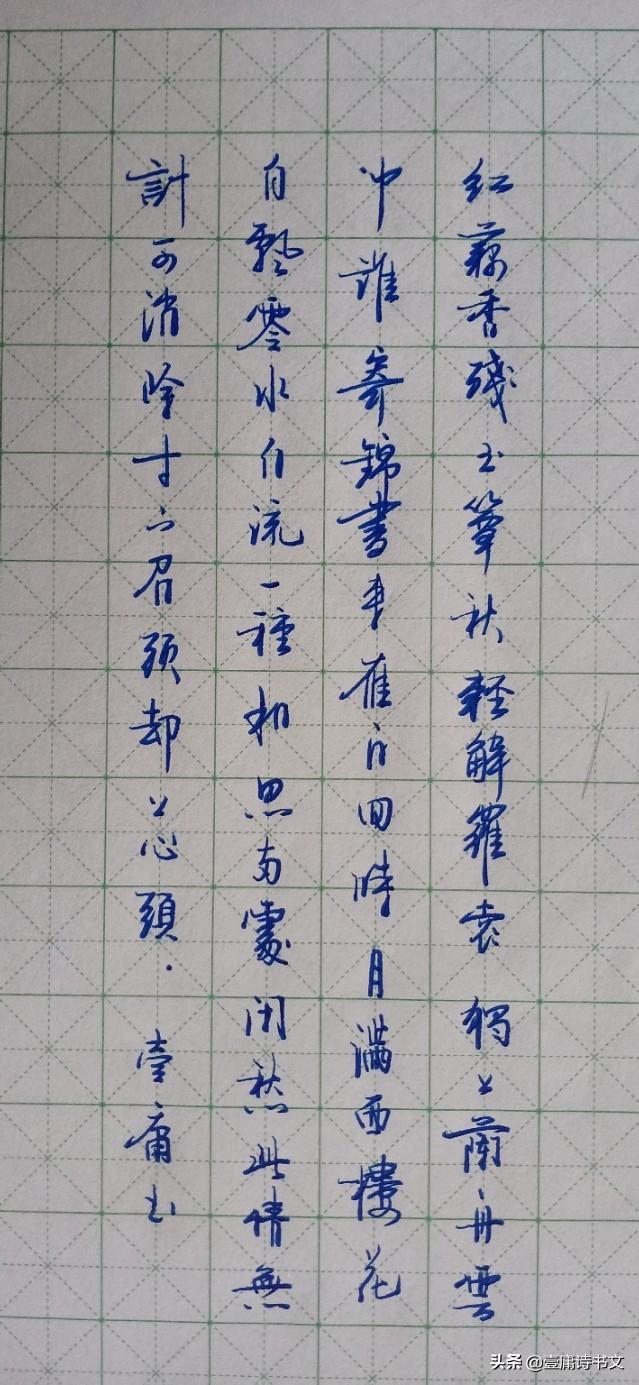 紅藕香殘玉簟秋輕解羅裳獨上蘭舟雲
中誰寄錦書来雁字回時月滿西樓花
自飄零水自流一種相思两處闲愁此情無
計可消除才下眉頭却上心頭．壹庸书
头条 @壹庸诗书文